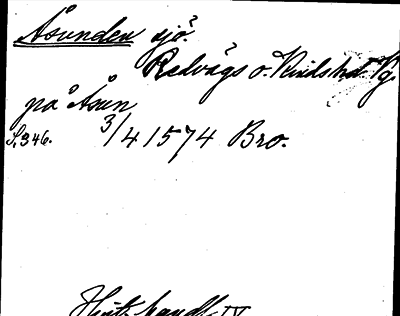 Åsunden sjö.
Redvägs o. Kinds hd. Vg
på Åsun
S. 946. 3/4 1574 Bro.
Hist. handl. IV